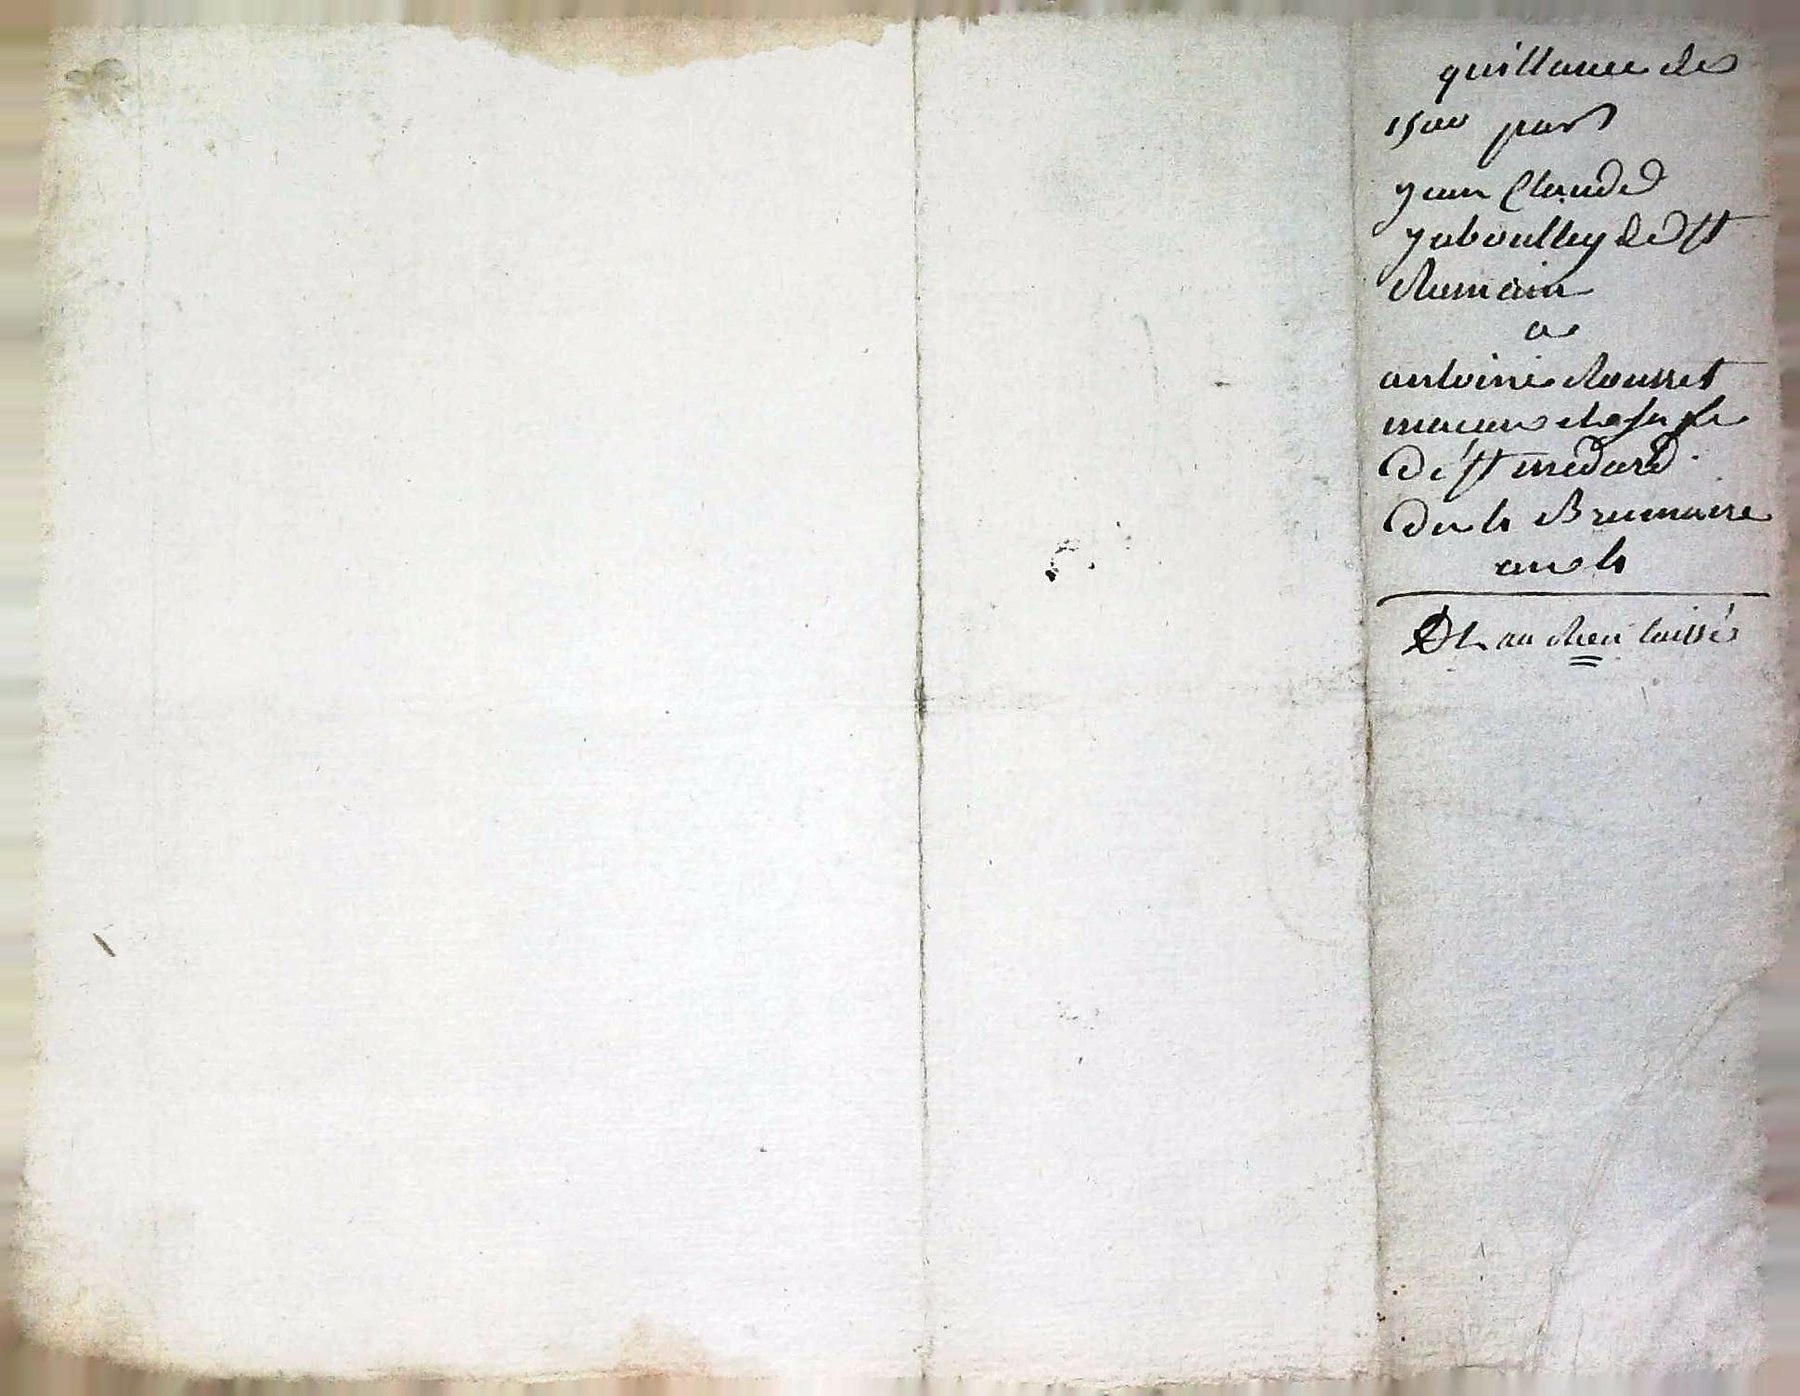 quittance de
1500 par
jean Claude
jaboulley de st
Rumain
a
antoine Rousset
maçon et sa fe
de st médard
du 4 Brumaire
an 4
au Rieu laissé